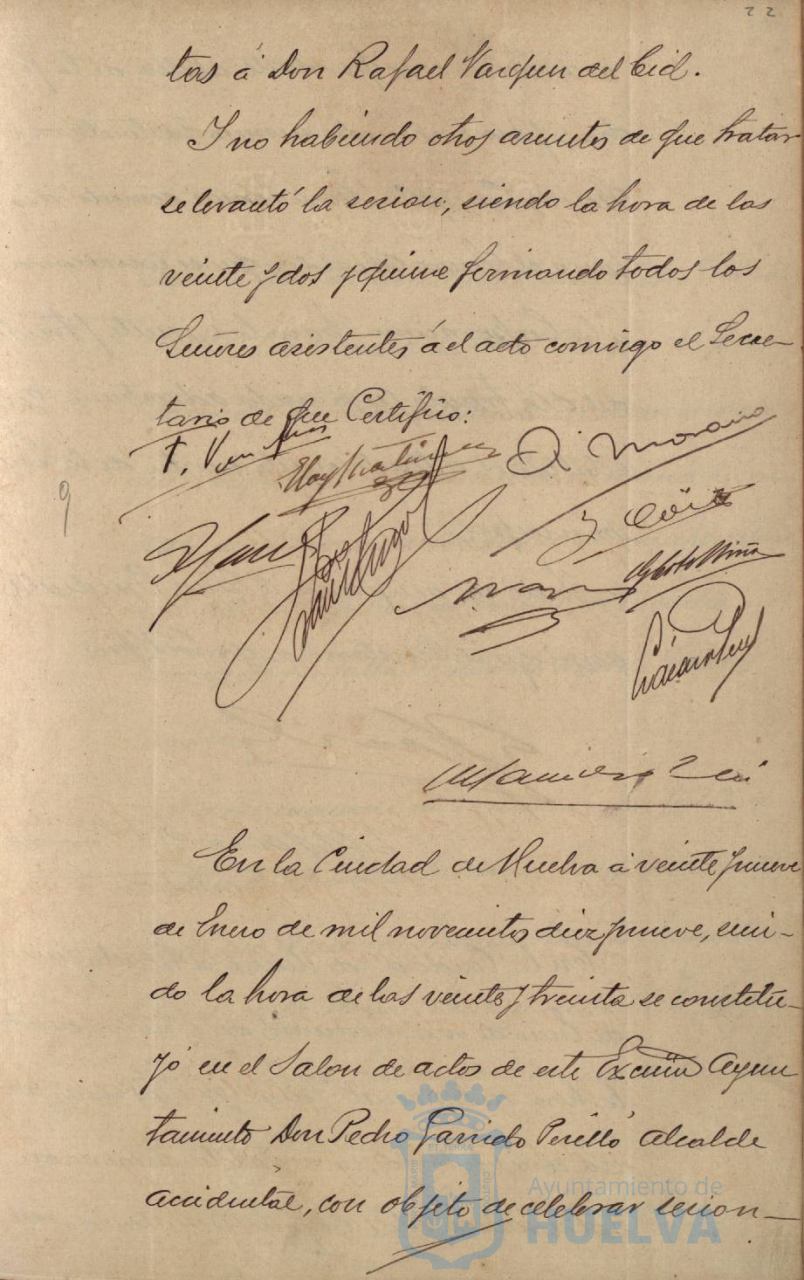 22
tas á Don Rafael Vazquez del Cid.
Y no habiendo otros asuntos de que tratar
se levantó la sesion, siendo la hora de las
veinte y dos y quince firmando todos los
Señores asistentes á el acto conmigo el Secre-
tario de que Certifico:
A. Moreno
En la Ciudad de Huelva á veinte y nueve
de Enero de mil novecientos diez y nueve, sien-
do la hora de las veinte y treinta se constitu-
yó en el Salon de actos de este Excmo Ayun
tamiento Don Pedro Garrido Perelló Alcalde
accidental, con objeto de celebrar sesion
Ayuntamiento de
HUELVA